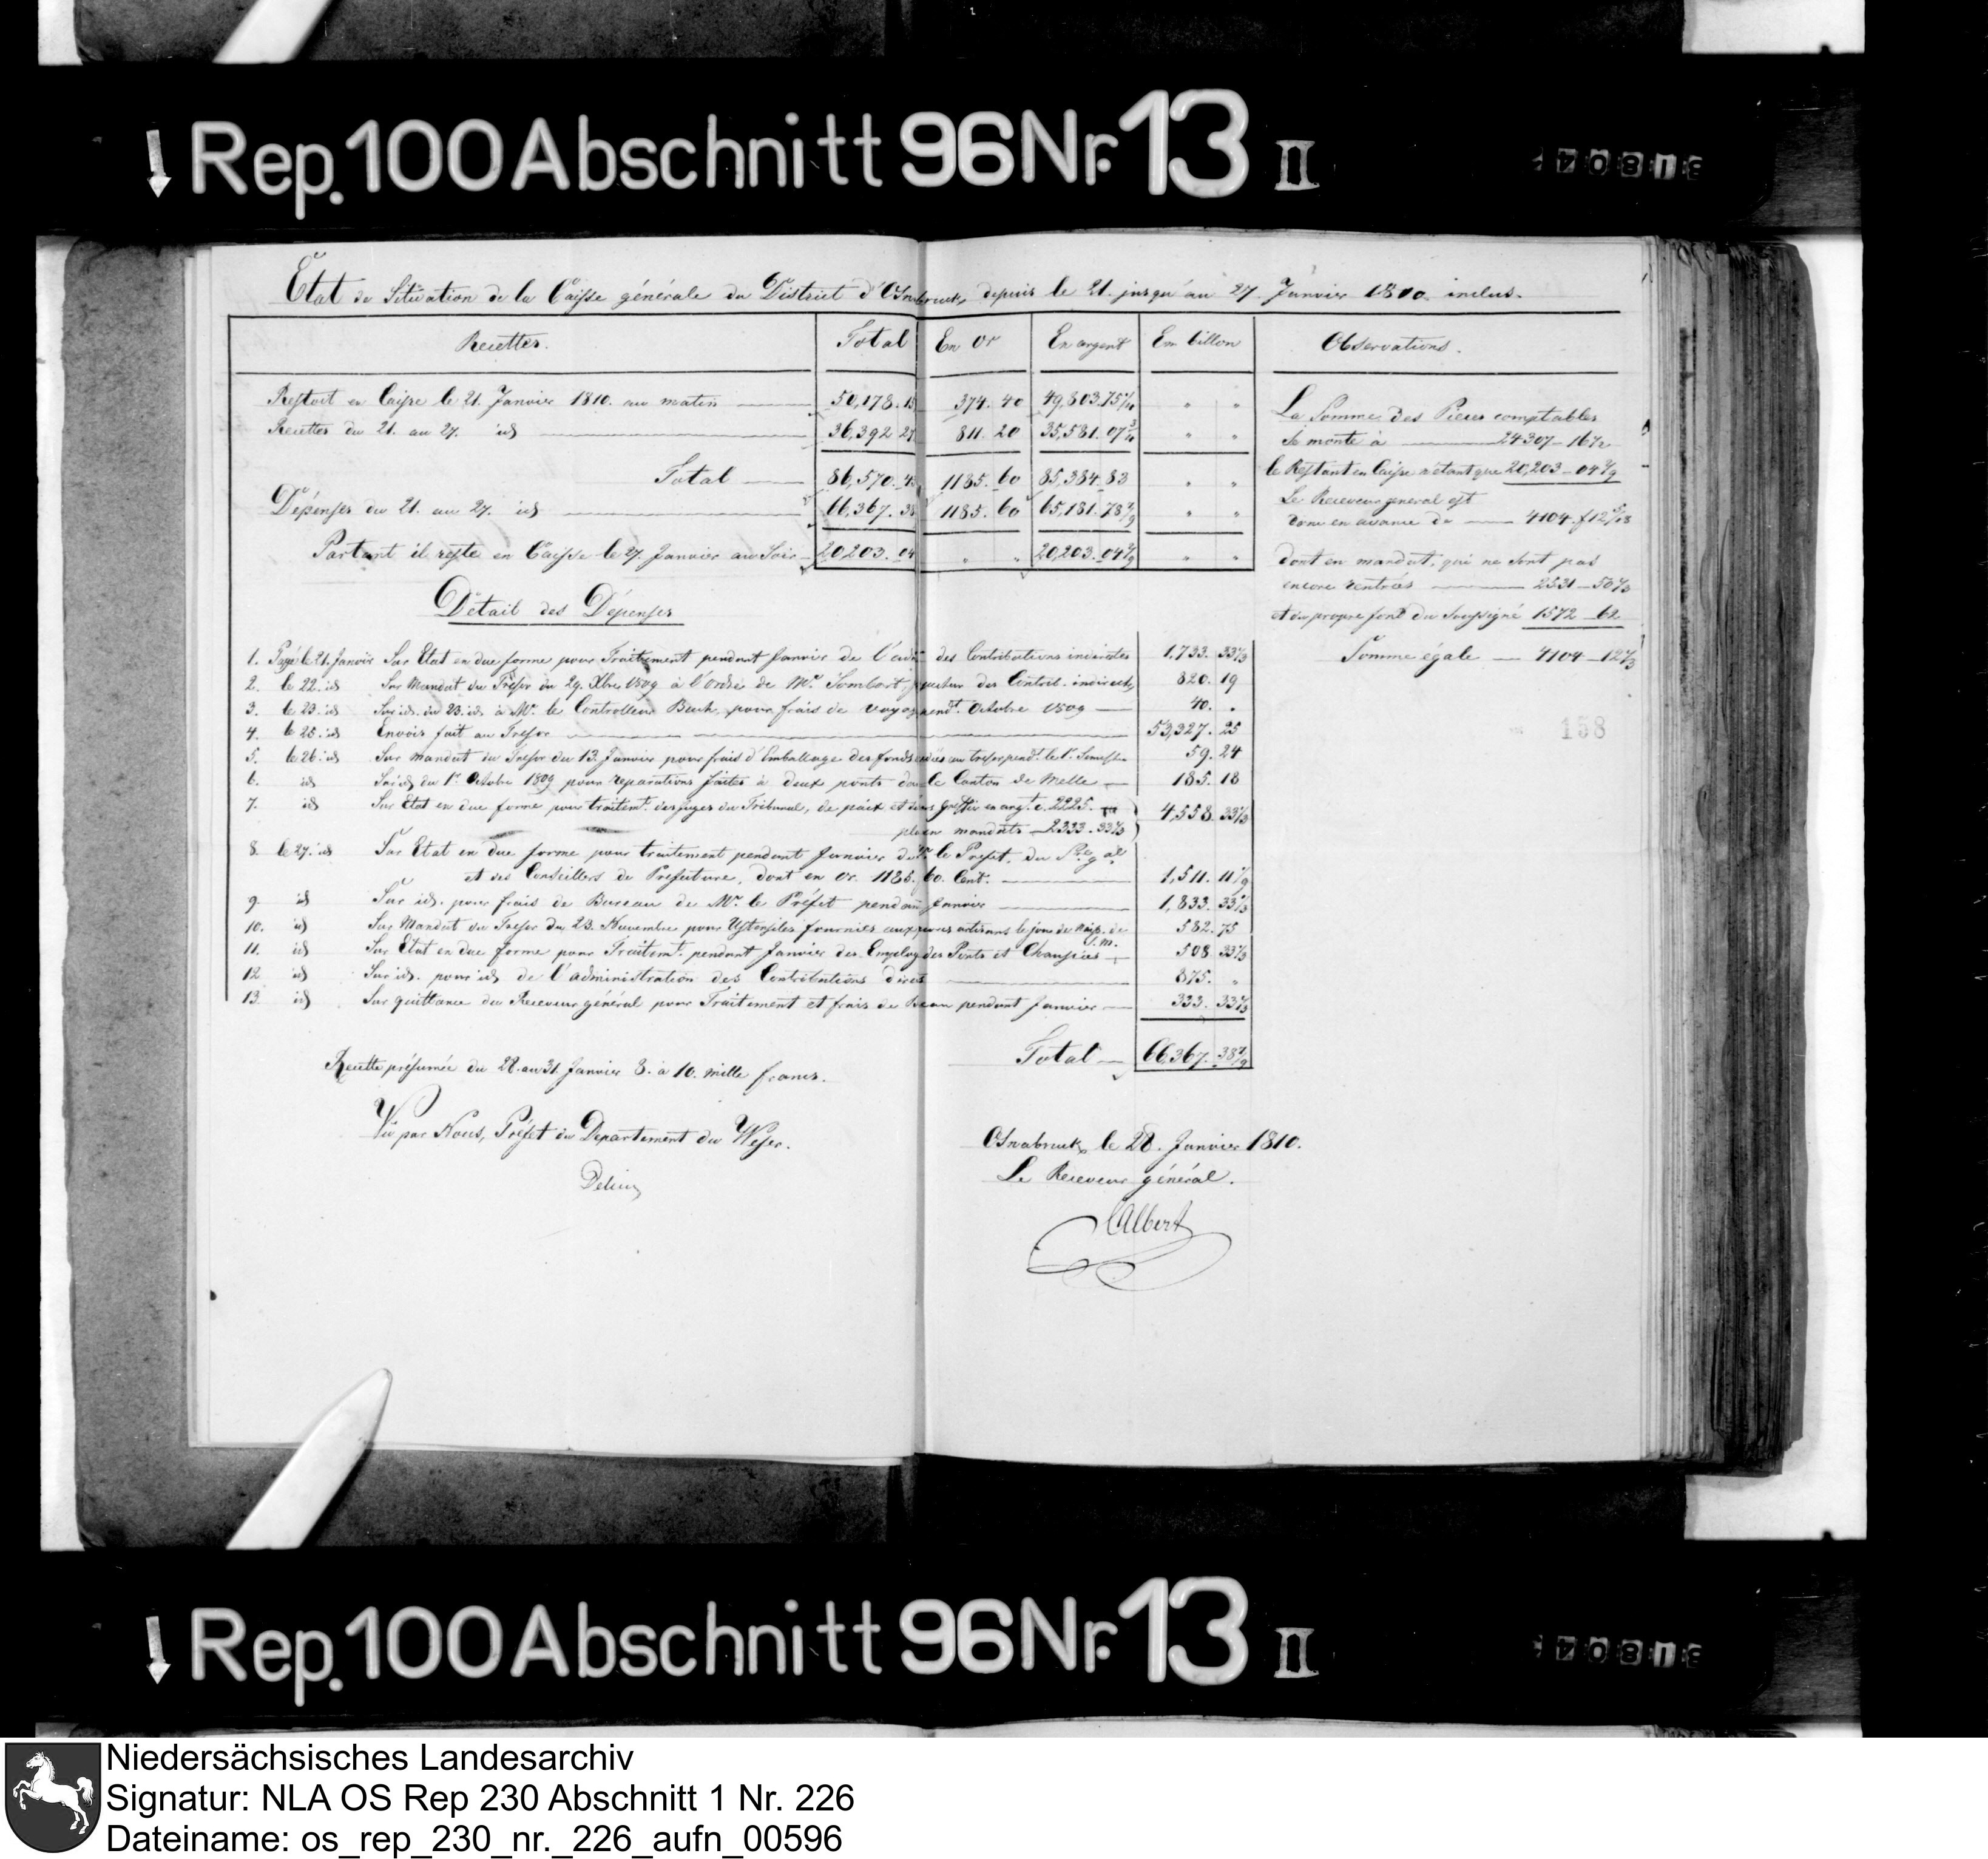 Rep. 100 Abschnitt 96 Nr. 13 II
Etat de Situation de la Caisse générale du District d'Osnabruck, depuis le 21. jusqu'au 27. Janvier 1810. inclus.
Recettes. Total En or En argent En billon Observations.
Restoit en Caisse le 21. Janvier 1810. au matin 50,178. 15 374. 40 49,803. 75 " "
Recettes du 21. au 27. id 36,392 27 811. 20 35,581. 07 " "
Total 86,570. 1185. 60 85,384. 83 " "
Dépenses du 21. au 27. id 66,367. 38 1185. 60 65,181. 78 7/9 " "
Partant il reste en Caisse le 27. Janvier au Soir 20,203. 04 " " 20,203. 04 2/9 " "
La Somme des Pièces comptables
se monte à 24307 - 16
le Restant en Caisse n'étant que 20,203 - 04 2/9
Le Receveur general est
donc en avance de 4104. f 12
dont en mandat, qui ne sont pas
encore rentrés 2531 - 50
et du propre fond du Soussigné 1572 - 62
Somme égale 4104 - 12
158
Détail des Dépenses
1. Payé le 21. Janvier Sur Etat en due forme pour Traitement pendant Janvier de l'adm des Contributions indirectes 1,733. 33 1/3
2. le 22. id Sur Mandat du Trésor du 29. Xbre 1809 à l'ordre de Mr. Sombart, des Contrib. indirect. 820. 19
3. le 23. id Sur id. du 23. id à Mr. le Controlleur pour frais de voyag pendt. Octobre 1809 40. "
4. le 25. id Envoi fait au Tresor 53,327. 25
5. le 26. id Sur mandat du Tresor du 13. Janvier pour frais d'Emballage des fonds au tresor pendt. le 1r. Semestre 59. 24
6. id Sur id du 1r. Octobre 1809 pour reparations faites à deux ponts dans le Canton de Melle 185. 18
7. id Sur Etat en due forme pour traitemt. des juges du Tribunal, de paix et en argt. c. 2225.
en mandats 2333. 33 1/3 4,558. 33 1/3
8. le 27. id Sur Etat en due forme pour traitement pendant Janvier de Mr. le Prefet, du
et des Conseillers de Prefecture, dont en or 1185. 60. Cent. 1,511. 11 1/9
9. id Sur id. pour frais de Bureau de Mr. le Préfet pendant Janvier 1,833. 33 1/3
10. id Sur Mandat du Tresor du 23. Novembre pour Ustensiles fournies aux artisans le jour de naiss. de S.M. 582. 75
11. id Sur Etat en due forme pour Traitemt. pendant Janvier des Employ des Ponts et Chaussées 508. 33 1/3
12. id Sur id. pour id de l'administration des Contributions direct 875. "
13. id Sur quittance du Receveur général pour Traitement et frais de Bureau pendant Janvier 333. 33 1/3
Total 66,367. 38 7/9
Recette présumée du 28. au 31 Janvier 8. à 10. mille francs.
Vu par Nous, Préfet du Departement du Weser.
Delius
Osnabruck, le 28. Janvier 1810.
Le Receveur général.
Albert
Rep. 100 Abschnitt 96 Nr. 13 II
Niedersächsisches Landesarchiv
Signatur: NLA OS Rep 230 Abschnitt 1 Nr. 226
Dateiname: os_rep_230_nr._226_aufn_00596